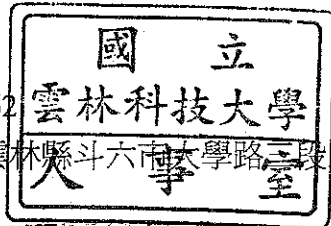 國立
2
雲林科技大學
雲林縣斗六市大學路三段
人事室